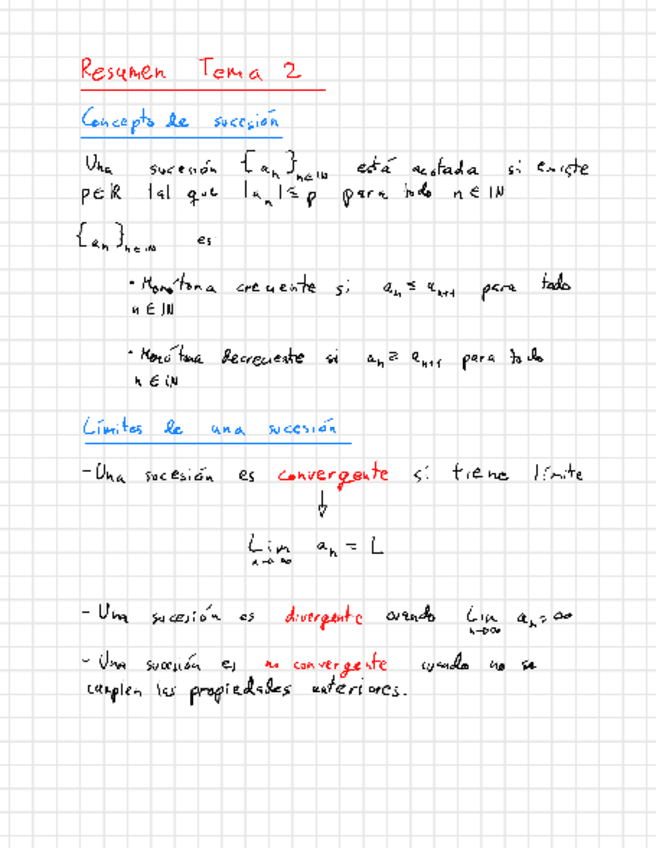 Resumen Tema 2
Concepto de sucesión
Una sucesión {aₙ}ₙ∈ℕ está acotada si existe
p∈ℝ tal que |aₙ| ≤ p para todo n ∈ ℕ
{aₙ}ₙ∈ℕ es
· Monótona creciente si aₙ ≤ aₙ₊₁ para todo
n ∈ ℕ
· Monótona decreciente si aₙ ≥ aₙ₊₁ para todo
n ∈ ℕ
Límites de una sucesión
- Una sucesión es convergente si tiene límite
↓
Lim aₙ = L
n→∞
- Una sucesión es divergente cuando Lim aₙ = ∞
n→∞
- Una sucesión es no convergente cuando no se
cumplen las propiedades anteriores.